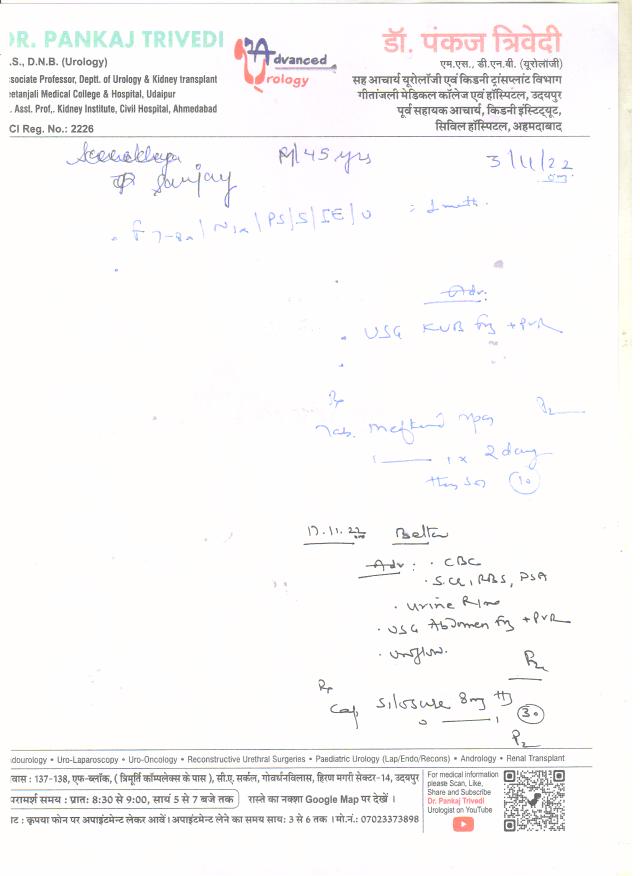 DR. PANKAJ TRIVEDI
.S., D.N.B. (Urology)
ssociate Professor, Deptt. of Urology & Kidney transplant
eetanjali Medical College & Hospital, Udaipur
. Asst. Prof,. Kidney Institute, Civil Hospital, Ahmedabad
CI Reg. No.: 2226
Advanced
Urology
डॉ. पंकज त्रिवेदी
एम.एस., डी.एन.बी. (यूरोलॉजी)
सह आचार्य यूरोलॉजी एवं किडनी ट्रांसप्लांट विभाग
गीतांजली मेडिकल कॉलेज एवं हॉस्पिटल, उदयपुर
पूर्व सहायक आचार्य, किडनी इंस्टिट्यूट,
सिविल हॉस्पिटल, अहमदाबाद
M/45 yrs
3/11/22
Sanjay
Adv:
USG KUB +PVR
Rx
Tab.
1 1 x 2 day
10
17.11.22 Better
Adv: . CBC
. S.Cr, RBS, PSA
. Urine
. USG Abdomen +PVR
. Uroflow.
Rx
Cap 8mg
0 1 30
dourology • Uro-Laparoscopy • Uro-Oncology • Reconstructive Urethral Surgeries • Paediatric Urology (Lap/Endo/Recons) • Andrology • Renal Transplant
वास : 137-138, एफ-ब्लॉक, ( त्रिमूर्ति कॉम्पलेक्स के पास ), सी.ए. सर्कल, गोवर्धनविलास, हिरण मगरी सेक्टर-14, उदयपुर
रामर्श समय : प्रात: 8:30 से 9:00, सायं 5 से 7 बजे तक रास्ते का नक्शा Google Map पर देखें ।
ट : कृपया फोन पर अपाइंटमेन्ट लेकर आवें। अपाइंटमेन्ट लेने का समय साय: 3 से 6 तक । मो.नं.: 07023373898
For medical information
please Scan, Like,
Share and Subscribe
Dr. Pankaj Trivedi
Urologist on YouTube